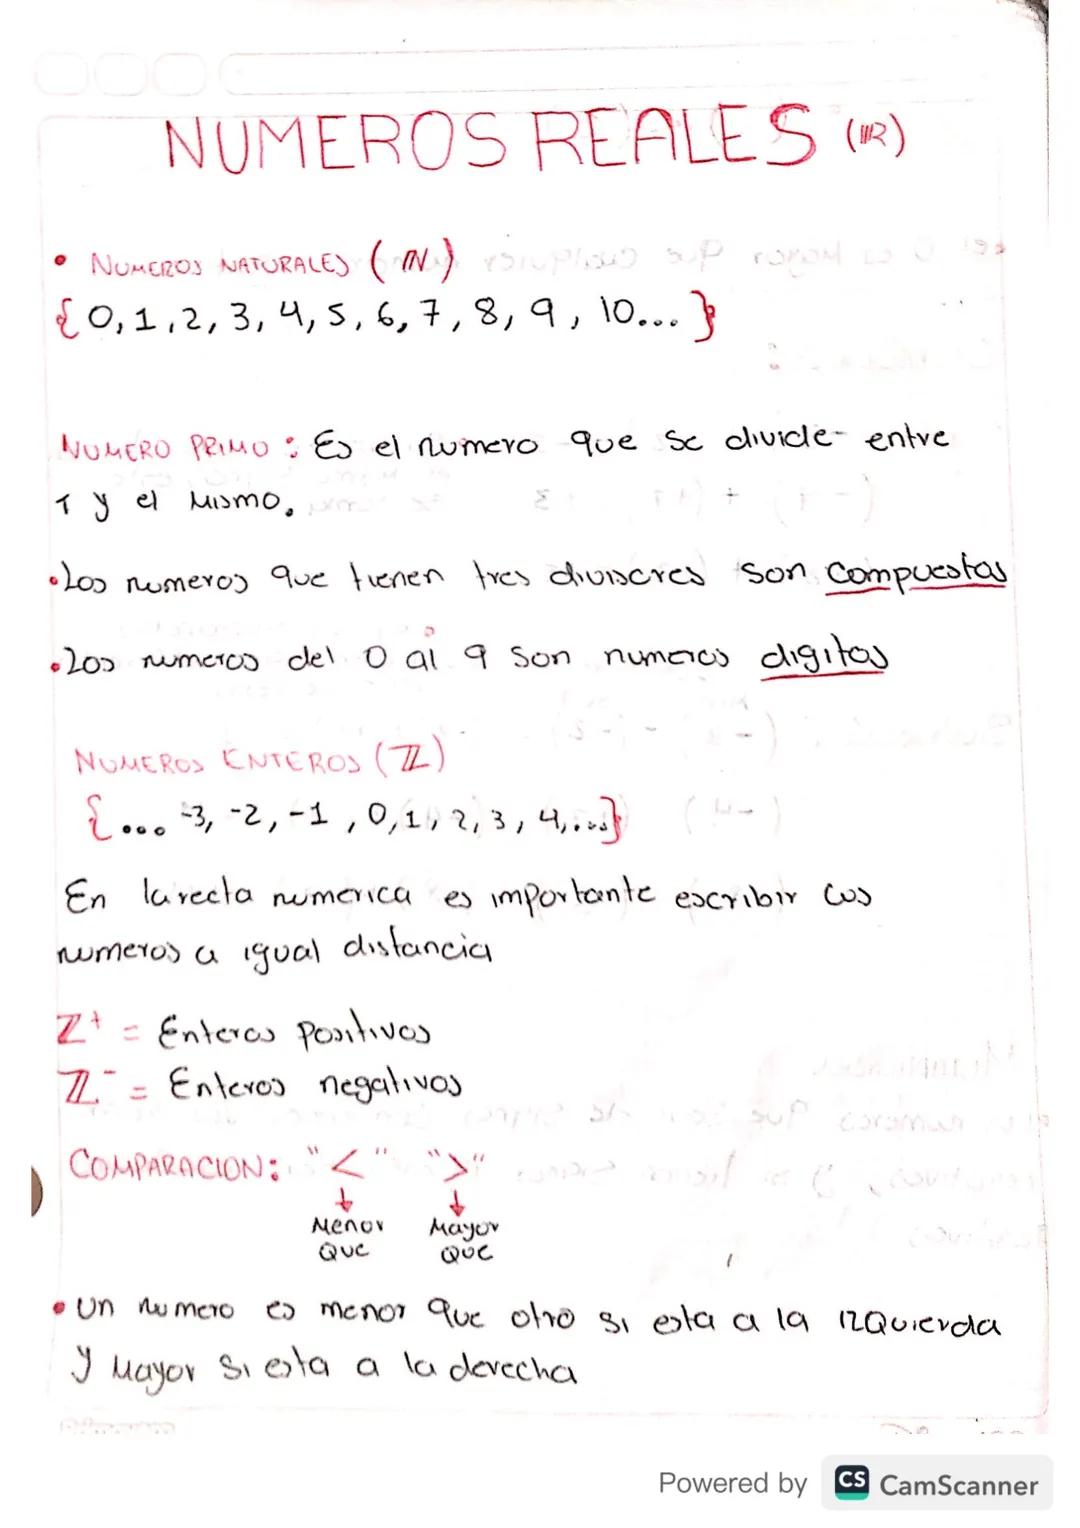 NUMEROS REALES (ℝ)
• NUMEROS NATURALES (ℕ)
{0, 1, 2, 3, 4, 5, 6, 7, 8, 9, 10... }
NUMERO PRIMO : Es el numero que se divide entre
1 y el mismo.
• Los numeros que tienen tres divisores son compuestos
• Los numeros del 0 al 9 son numeros digitos
NUMEROS ENTEROS (ℤ)
{... -3, -2, -1, 0, 1, 2, 3, 4,...}
En la recta numerica es importante escribir los
numeros a igual distancia
ℤ⁺ = Enteros positivos
ℤ⁻ = Enteros negativos
COMPARACION: "<" ">"
↓ ↓
Menor Mayor
Que Que
• Un numero es menor que otro si esta a la izquierda
y Mayor si esta a la derecha
Powered by CS CamScanner